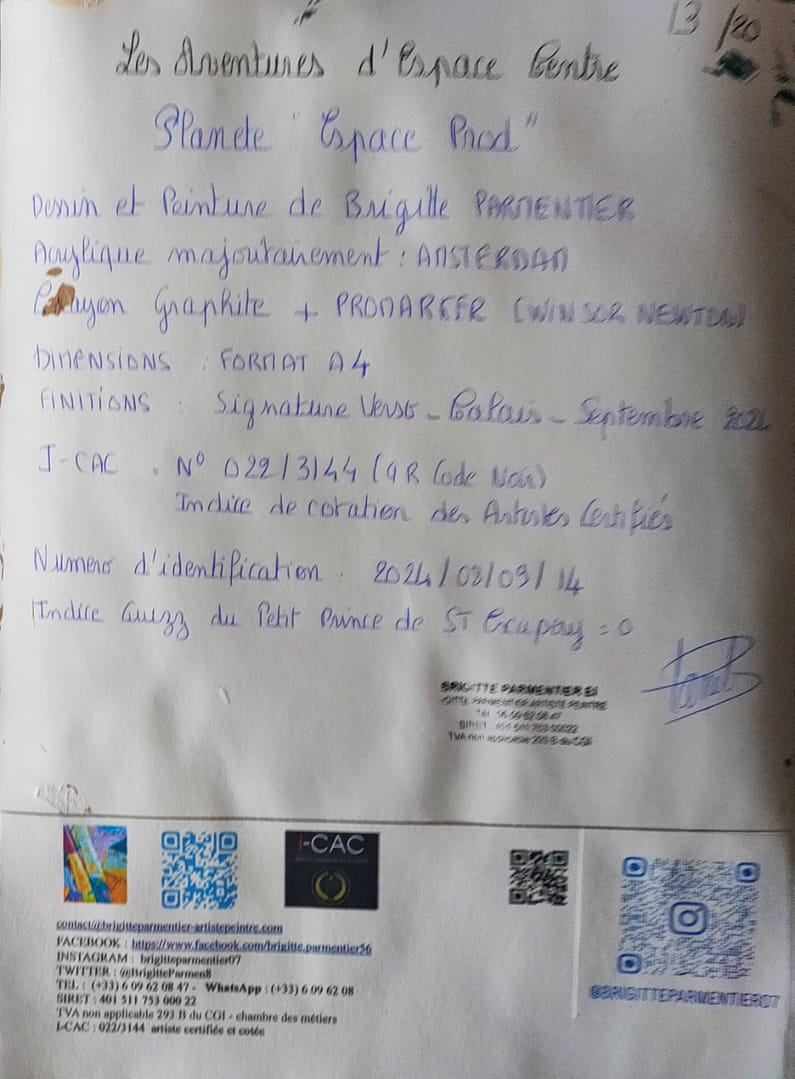 13/20
Les Aventures d'Espace Centre
Planete "Espace Prod"
Dessin et Peinture de Brigitte PARMENTIER
Acrylique majoritairement : AMSTERDAM
Crayon Graphite + PROMARKER (WINSOR NEWTON)
DIMENSIONS : FORMAT A4
FINITIONS : Signature Verso - Palais - Septembre
I-CAC . N° 022/3144 (QR Code Noir)
Indice de cotation des Artistes Certifiés
Numero d'identification . 2024/03/09/14
Indice Quizz du Petit Prince de ST Exupery = 0
BRIGITTE PARMENTIER EI
SIRET
TVA non applicable 293 B du CGI
I-CAC
contact@brigitteparmentier-artistepeintre.com
FACEBOOK : https://www.facebook.com/brigitte.parmentier56
INSTAGRAM : brigitteparmentier07
TWITTER : @BrigitteParmen8
TEL : (+33) 6 09 62 08 47 - WhatsApp : (+33) 6 09 62 08
SIRET : 401 511 753 000 22
TVA non applicable 293 B du CGI - chambre des métiers
I-CAC : 022/3144 artiste certifiée et cotée
@BRIGITTEPARMENTIER07